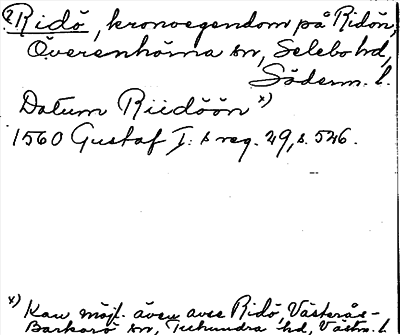 2) Ridö, kronoegendom på Ridön,
Överenhörna sn, Selebo hd,
Söderm. l.
Datum Riidöön x)
1560 Gustaf I:s reg. 29, s. 546.
x) Kan möjl. även avse Ridö, Västerås-
Barkarö sn, Tuhundra hd, Västm. l.